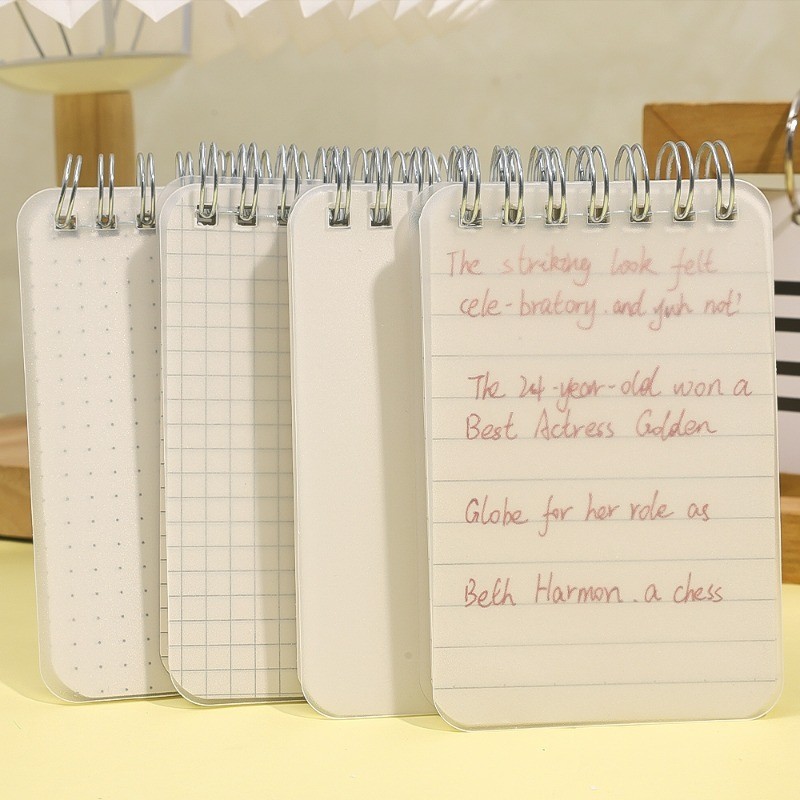 The striking look felt
cele-bratory and not!
The 24-year-old won a
Best Actress Golden
Globe for her role as
Beth Harmon . a chess